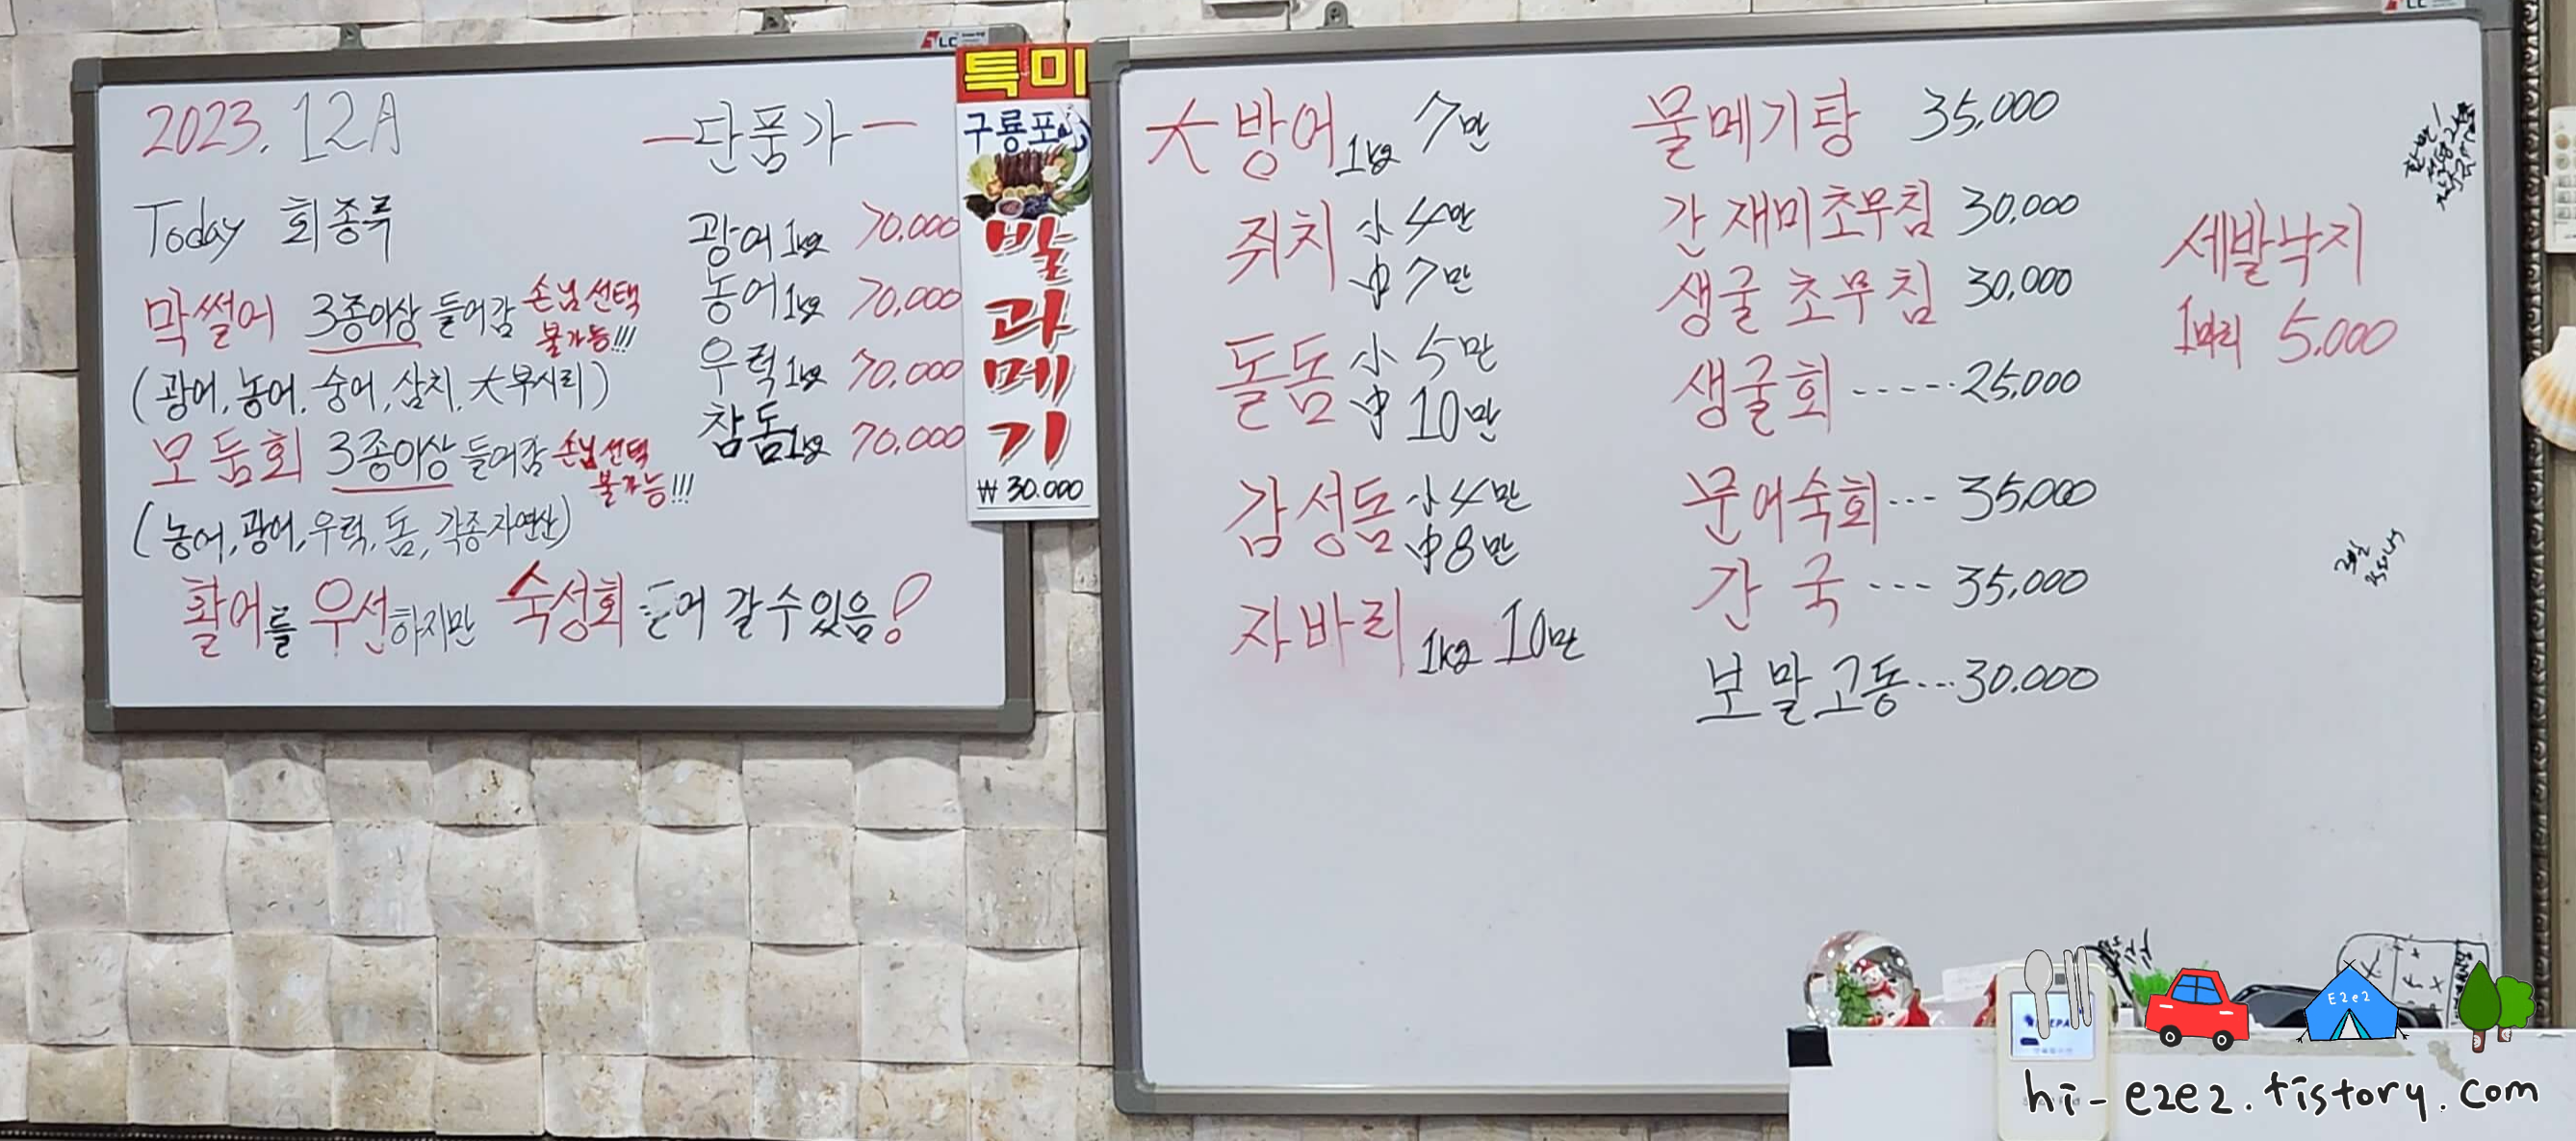 2023. 12月
Today 회종류
막썰어 3종이상 들어감 손님선택
불가능!!!
(광어, 농어, 숭어, 삼치, 大부시리)
모둠회 3종이상 들어감 손님선택
불가능!!!
(농어, 광어, 우럭, 돔, 각종자연산)
활어를 우선하지만 숙성회 들어 갈수있음!
-단품가-
광어 1kg 70,000
농어 1kg 70,000
우럭 1kg 70,000
참돔 1kg 70,000
특미
구룡포
발
과
메
기
₩ 30.000
大방어 1kg 7만
쥐치 小 4만
中 7만
돌돔 小 5만
中 10만
감성돔 小 4만
中 8만
자바리 1kg 10만
물메기탕 35,000
간재미초무침 30,000
생굴 초무침 30,000
생굴회 -----25,000
문어숙회--- 35,000
간 국 --- 35,000
보말고동...30.000
세발낙지
1마리 5.000
E2e2
hi-e2e2.tistory.com